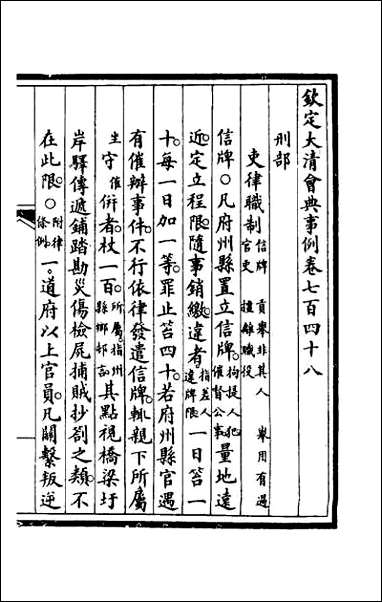 欽定大清會典事例卷七百四十八
刑部
吏律職制信牌 貢舉非其人 舉用有過官吏 擅離職役
信牌○凡府州縣置立信牌拘提人犯催督公事量地遠
近定立程限隨事銷繳違者指差人違牌限一日笞一
十每一日加一等罪止笞四十若府州縣官遇
有催辦事件不行依律發遣信牌輒親下所屬
坐守催併者杖一百所屬指州縣鄉村言其點視橋梁圩
岸驛傳遞鋪踏勘災傷檢屍捕賊抄劄之類不
在此限○附律條例一道府以上官員凡關繫叛逆